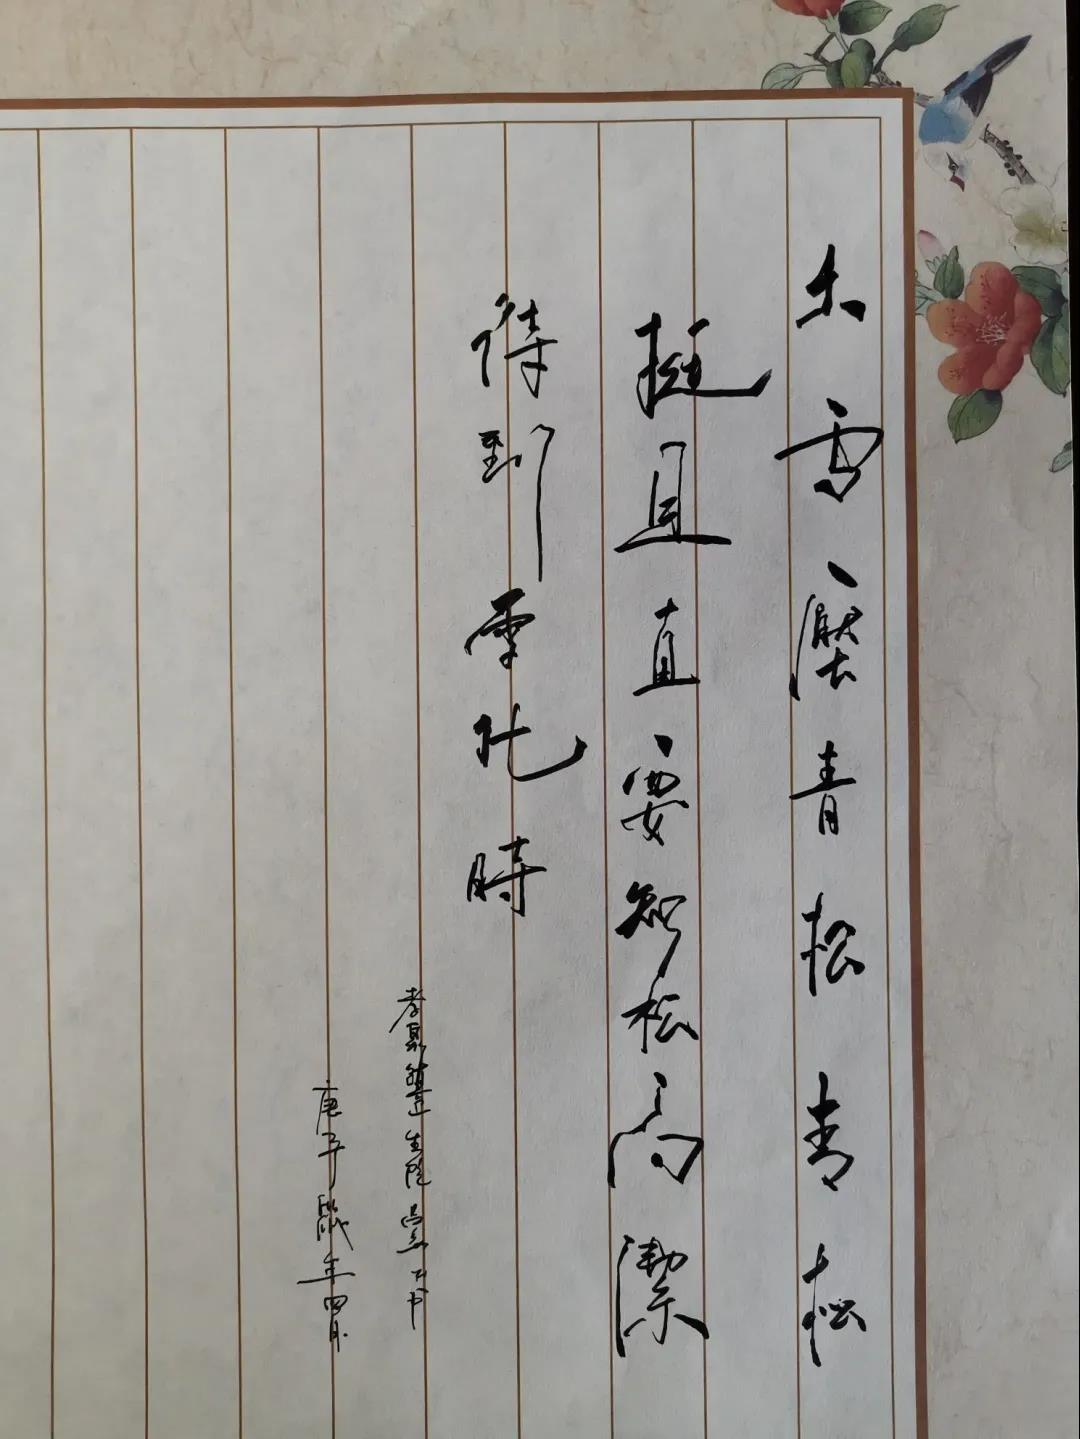 大雪壓青松青松
挺且直要知松高潔
待到雪化時
庚子鼠年四月